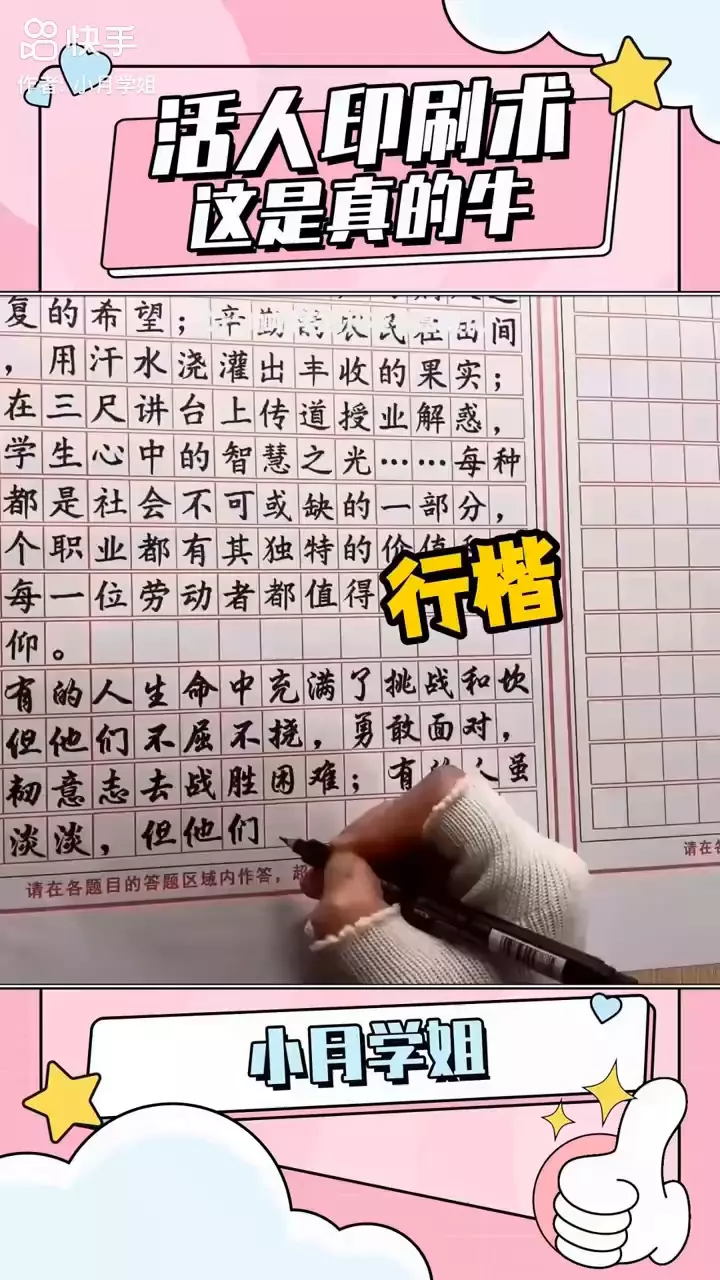 快手
作者：小月学姐
活人印刷术
这是真的牛
复的希望；辛勤的农民在田间
，用汗水浇灌出丰收的果实；
在三尺讲台上传道授业解惑，
学生心中的智慧之光……每种
都是社会不可或缺的一部分，
个职业都有其独特的价值
每一位劳动者都值得
行楷
仰。
有的人生命中充满了挑战和坎
但他们不屈不挠，勇敢面对，
韧意志去战胜困难；有的人虽
淡淡，但他们
请在各题目的答题区域内作答，超
请在各
小月学姐